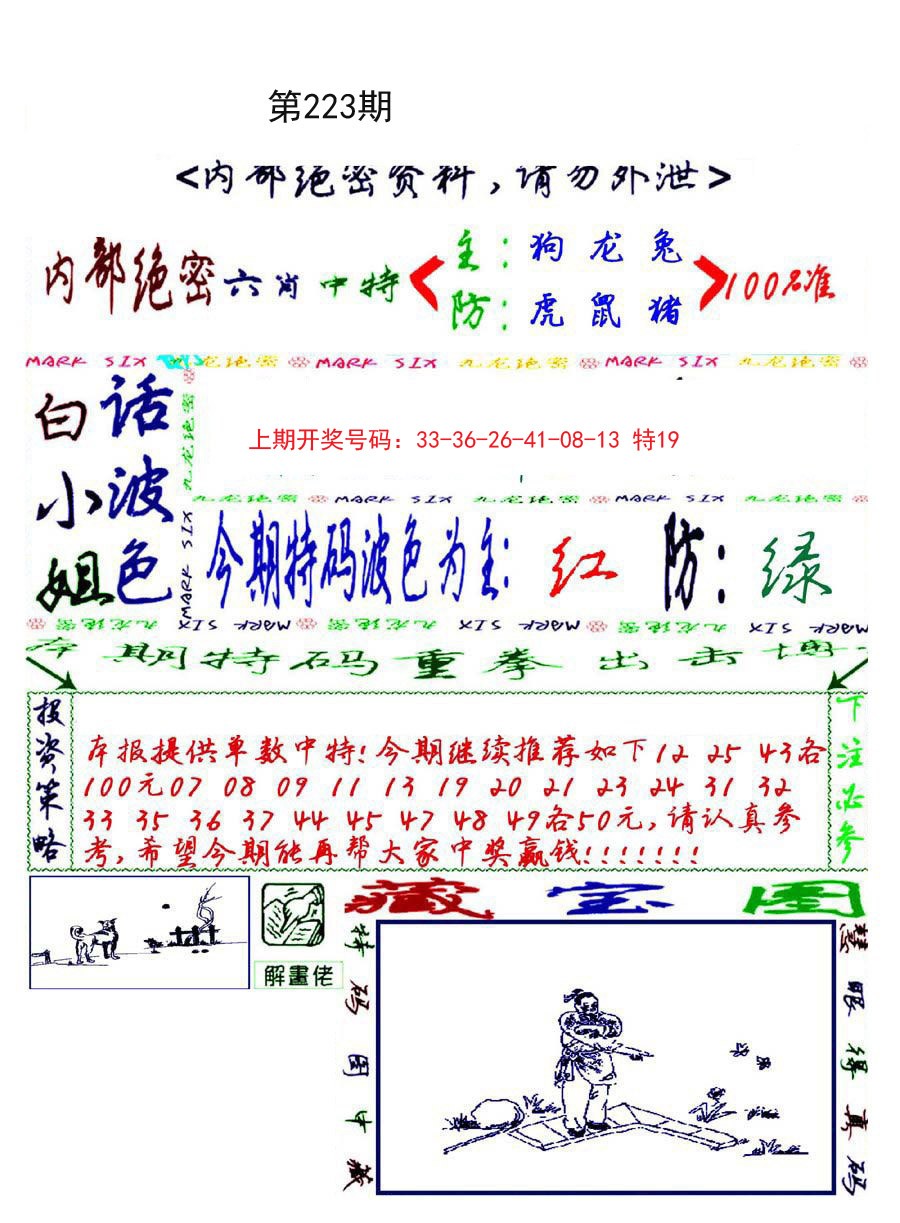 第223期
<内部绝密资料,请勿外泄>
内部绝密六肖中特
主:狗龙兔
防:虎鼠猪
100%准
MARK SIX 九龙绝密 MARK SIX 九龙绝密 MARK SIX 九龙绝密
白小姐
话波色
九龙绝密
MARK SIX
上期开奖号码：33-36-26-41-08-13 特19
九龙绝密 MARK SIX 九龙绝密 MARK SIX 九龙绝密
今期特码波色为主:红 防:绿
九龙绝密 MARK SIX 九龙绝密 MARK SIX 九龙绝密 MARK SIX
本期特码重拳出击博
投资策略
本报提供单数中特!今期继续推荐如下12 25 43各
100元07 08 09 11 13 19 20 21 23 24 31 32
33 35 36 37 44 45 47 48 49各50元,请认真参
考,希望今期能再帮大家中奖赢钱!!!!!!!
下注必参
解畫佬
藏宝图
特码图中藏
慧眼得真码